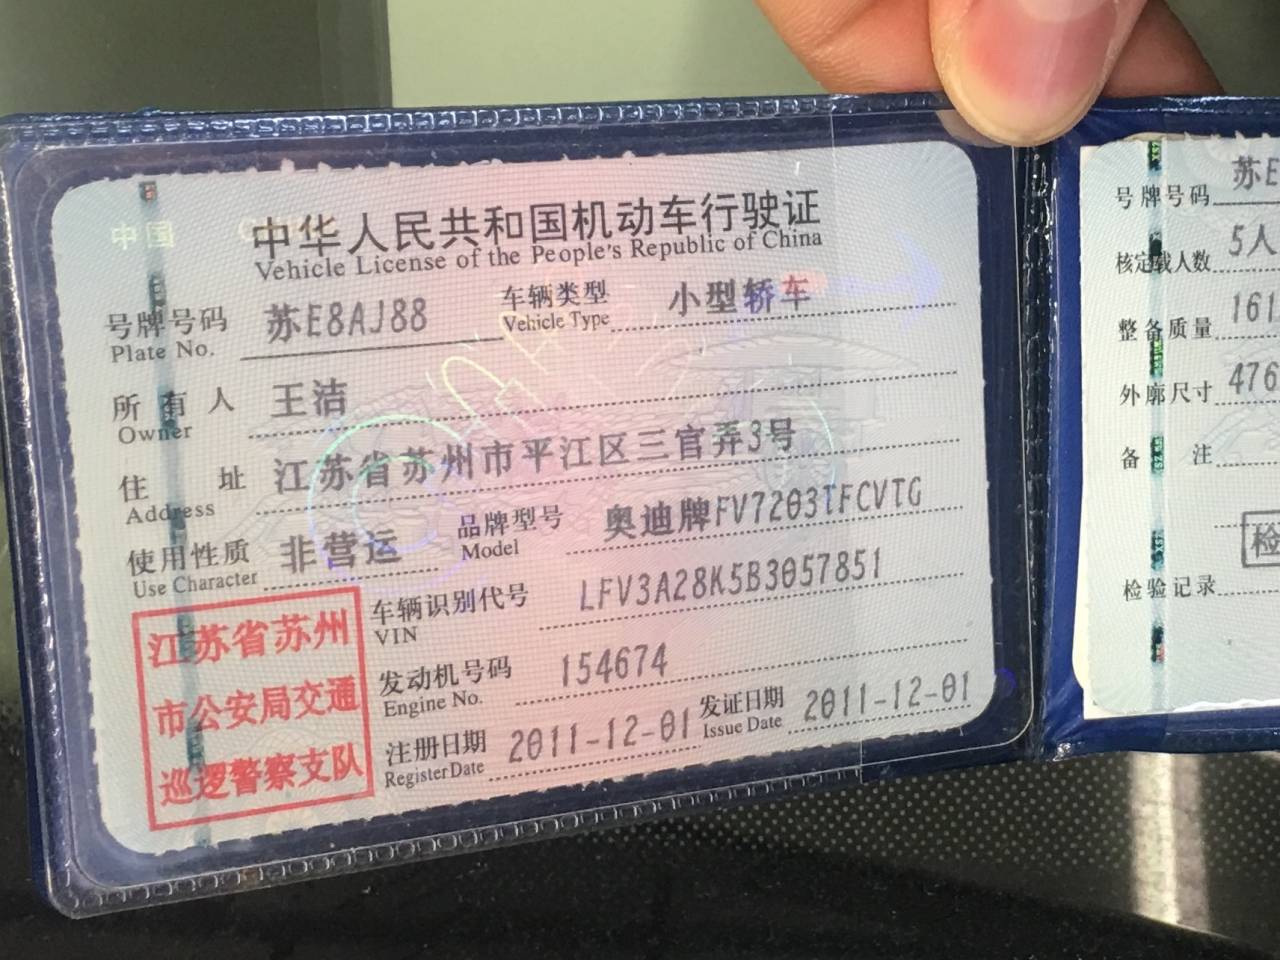 中国
中华人民共和国机动车行驶证
Vehicle License of the People's Republic of China
号牌号码 苏E8AJ88 车辆类型 小型轿车
Plate No. Vehicle Type
所有人 王洁
Owner
住址 江苏省苏州市平江区三官弄3号
Address
使用性质 非营运 品牌型号 奥迪牌FV7203TFCVTG
Use Character Model
车辆识别代号 LFV3A28K5B3057851
VIN
发动机号码 154674
Engine No.
注册日期 2011-12-01 发证日期 2011-12-01
Register Date Issue Date
江苏省苏州
市公安局交通
巡逻警察支队
号牌号码 苏E
核定载人数 5人
整备质量 161
外廓尺寸 476
备注
检
检验记录